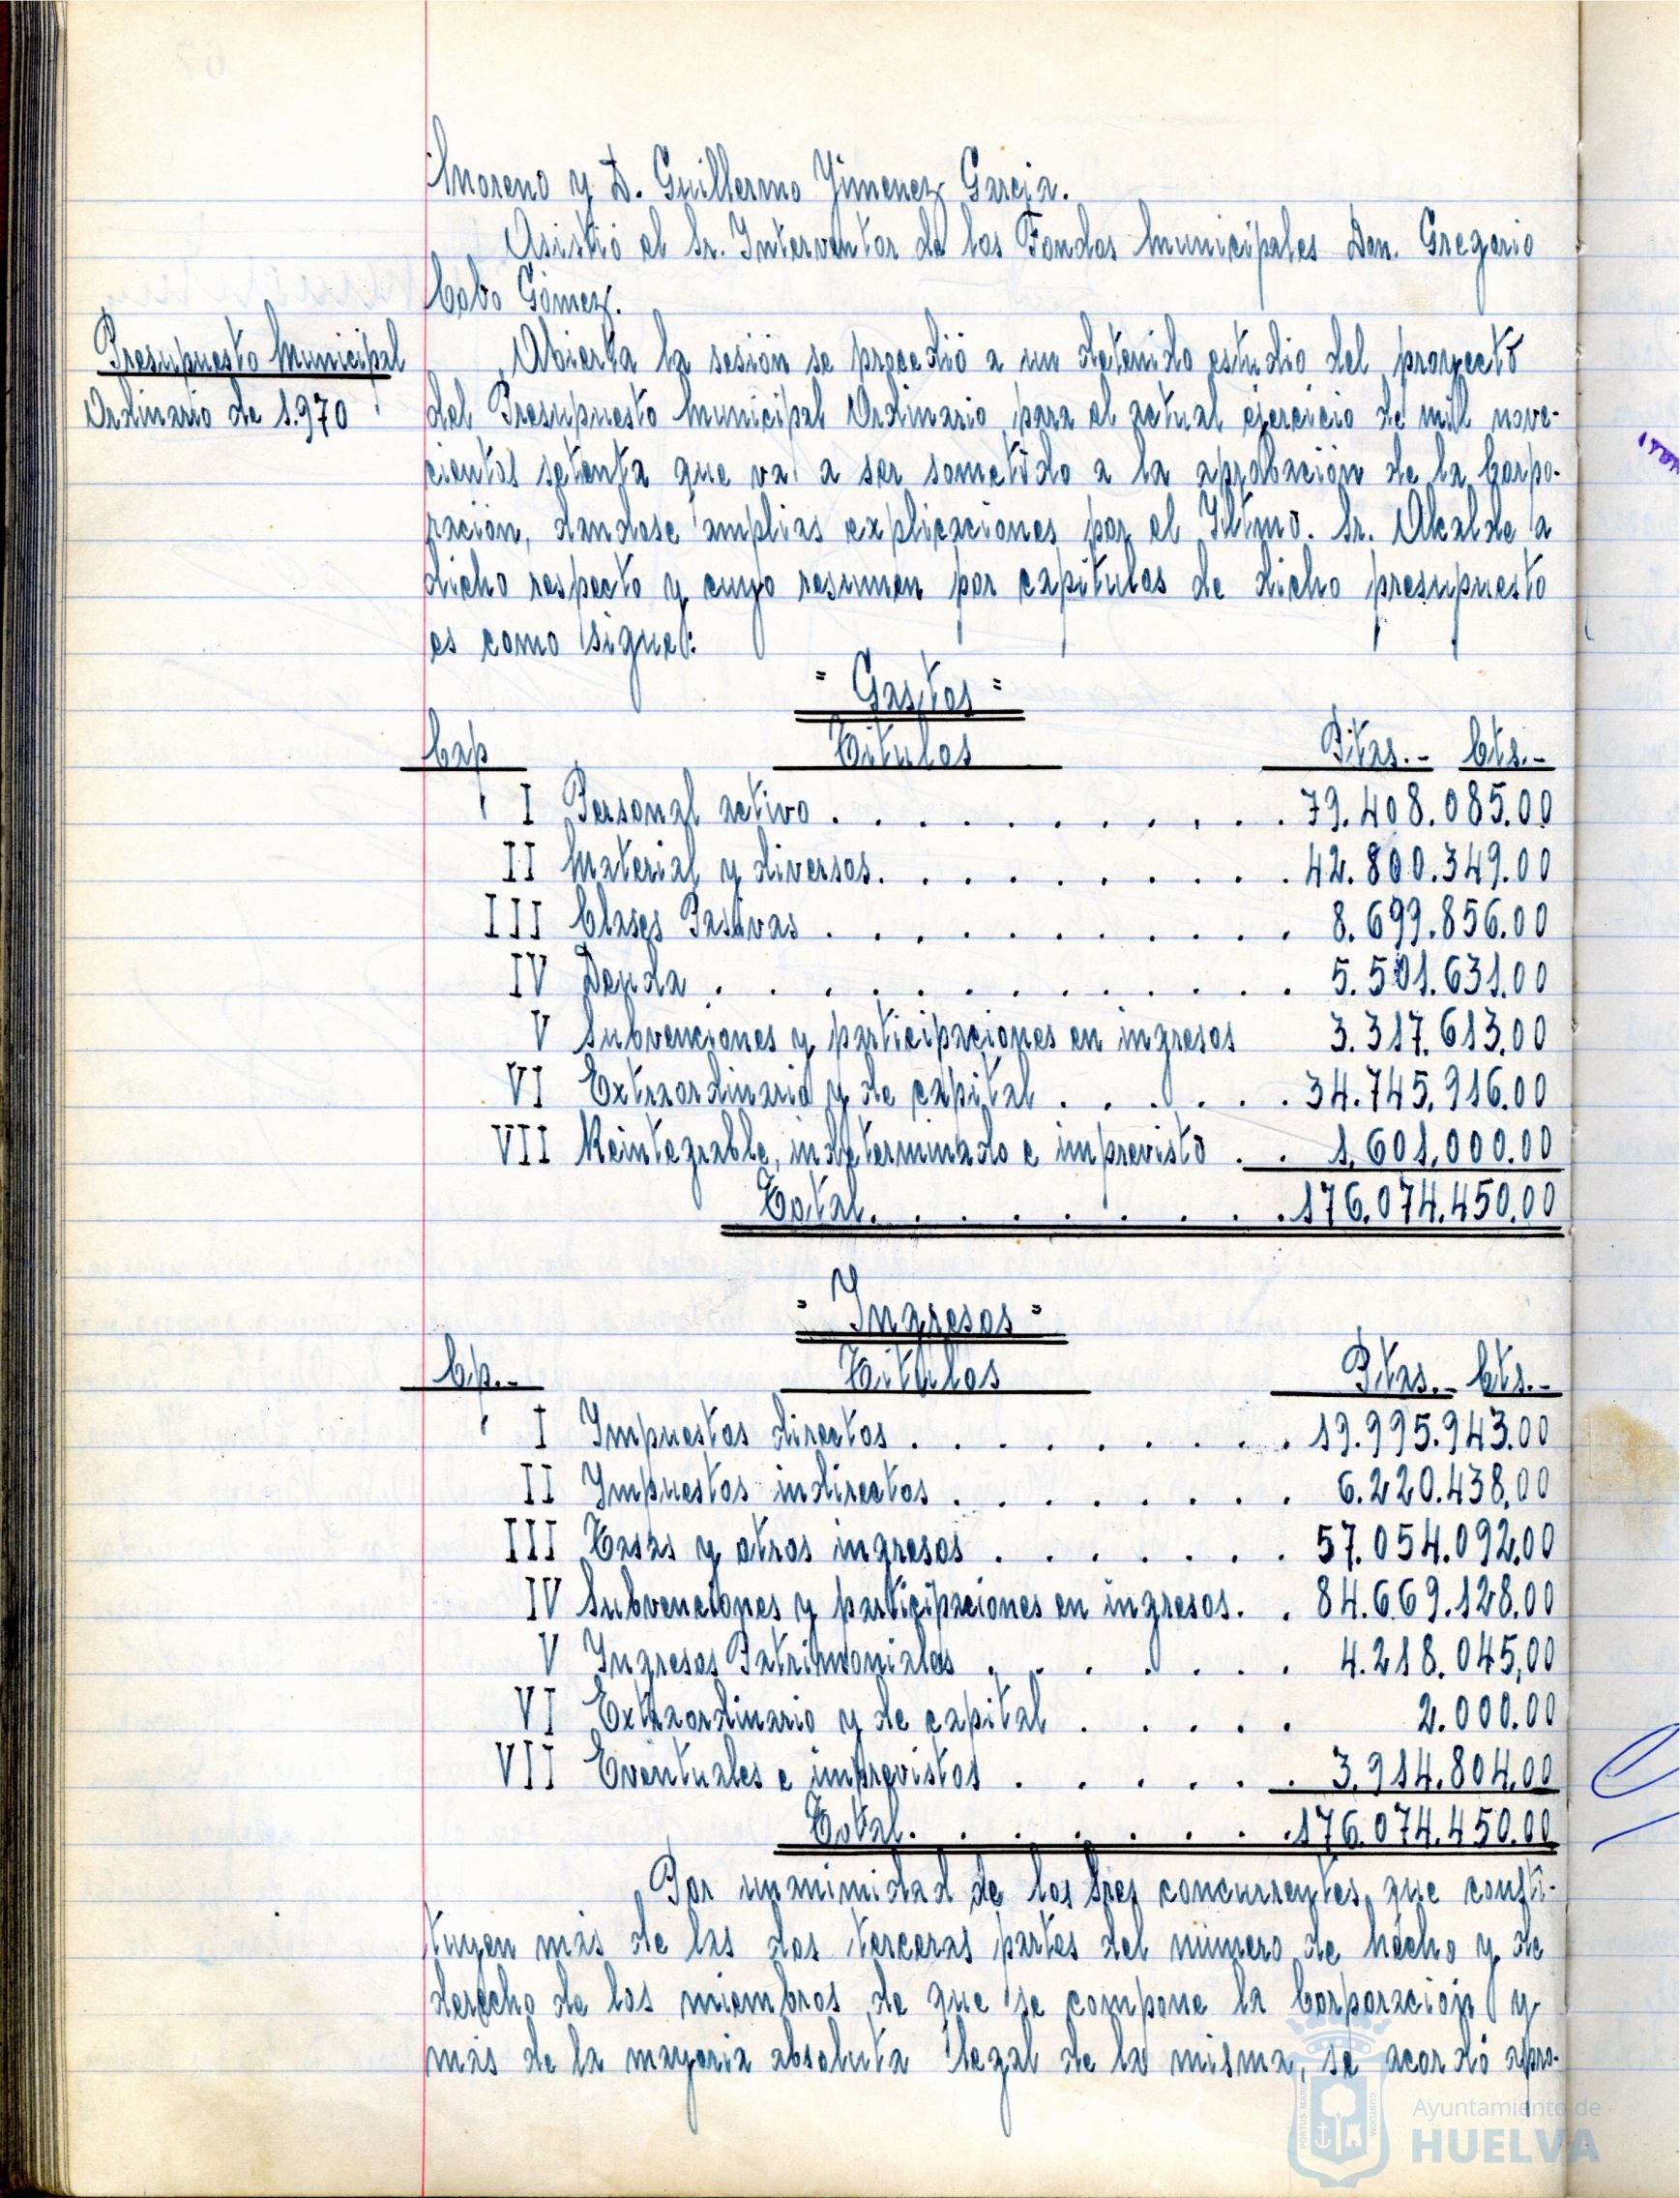 Moreno y D. Guillermo Jimenez Garcia.
Asistió el Sr. Interventor de los Fondos Municipales Don. Gregorio
Cobo Gómez.
Presupuesto Municipal
Ordinario de 1.970
Abierta la sesión se procedió a un detenido estudio del proyecto
del Presupuesto Municipal Ordinario para el actual ejercicio de mil nove-
cientos setenta que va a ser sometido a la aprobación de la Corpo-
ración, dandose amplias explicaciones por el Iltmo. Sr. Alcalde a
dicho respecto y cuyo resumen por capitulos de dicho presupuesto
es como sigue:
" Gastos "
Cap Titulos Ptas.- Cts.-
I Personal activo . . . . . . . . . . . 79.408.085.00
II Material y diversos. . . . . . . . . . 42.800.349.00
III Clases Pasivas . . . . . . . . . . . 8.699.856.00
IV Deuda . . . . . . . . . . . . . 5.501.631.00
V Subvenciones y participaciones en ingresos 3.317.613.00
VI Extraordinario y de capital . . . . . . 34.745.916.00
VII Reintegrable, indeterminado e imprevisto . . 1.601.000.00
Total. . . . . . . . . . 176.074.450.00
" Ingresos "
Cp.- Titulos Ptas.- Cts.-
I Impuestos directos . . . . . . . . . 19.995.943.00
II Impuestos indirectos . . . . . . . . 6.220.438,00
III Tasas y otros ingresos . . . . . . . 57.054.092,00
IV Subvenciones y participaciones en ingresos. . 84.669.128.00
V Ingresos Patrimoniales . . . . . . . 4.218.045,00
VI Extraordinario y de capital . . . . . 2.000.00
VII Eventuales e imprevistos . . . . . . 3.914.804.00
Total. . . . . . . . . 176.074.450.00
Por unanimidad de los Sres concurrentes, que consti-
tuyen más de las dos terceras partes del número de hecho y de
derecho de los miembros de que se compone la Corporación y
más de la mayoria absoluta legal de la misma, se acordó apro-
PORTUS MARIS
CUSTODIA
Ayuntamiento de
HUELVA